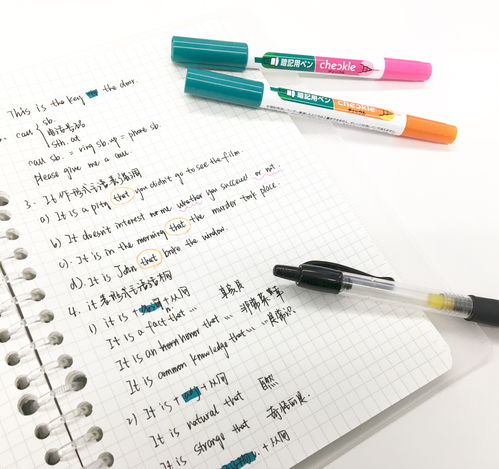 暗記用ペン checkle
暗記用ペン checkle
This is the key the door.
call sb.
sth. at
call sb. = ring sb. up = phone sb.
Please give me a call.
3. It 作形式主语
a) It is a pity that you didn't go to see the film.
b) It doesn't interest me whether you succeed or not.
c). It is in the morning that the murder took place.
d). It is John that broke the window.
4. it 作形式主语
1) it is + +从句
It is a fact that ... 事实是
It is an honor that ... 非常荣幸
It is common knowledge that ... 是常识
2) It is + +从句
It is natural that 自然
It is strange that 奇怪的是.
It is +从句